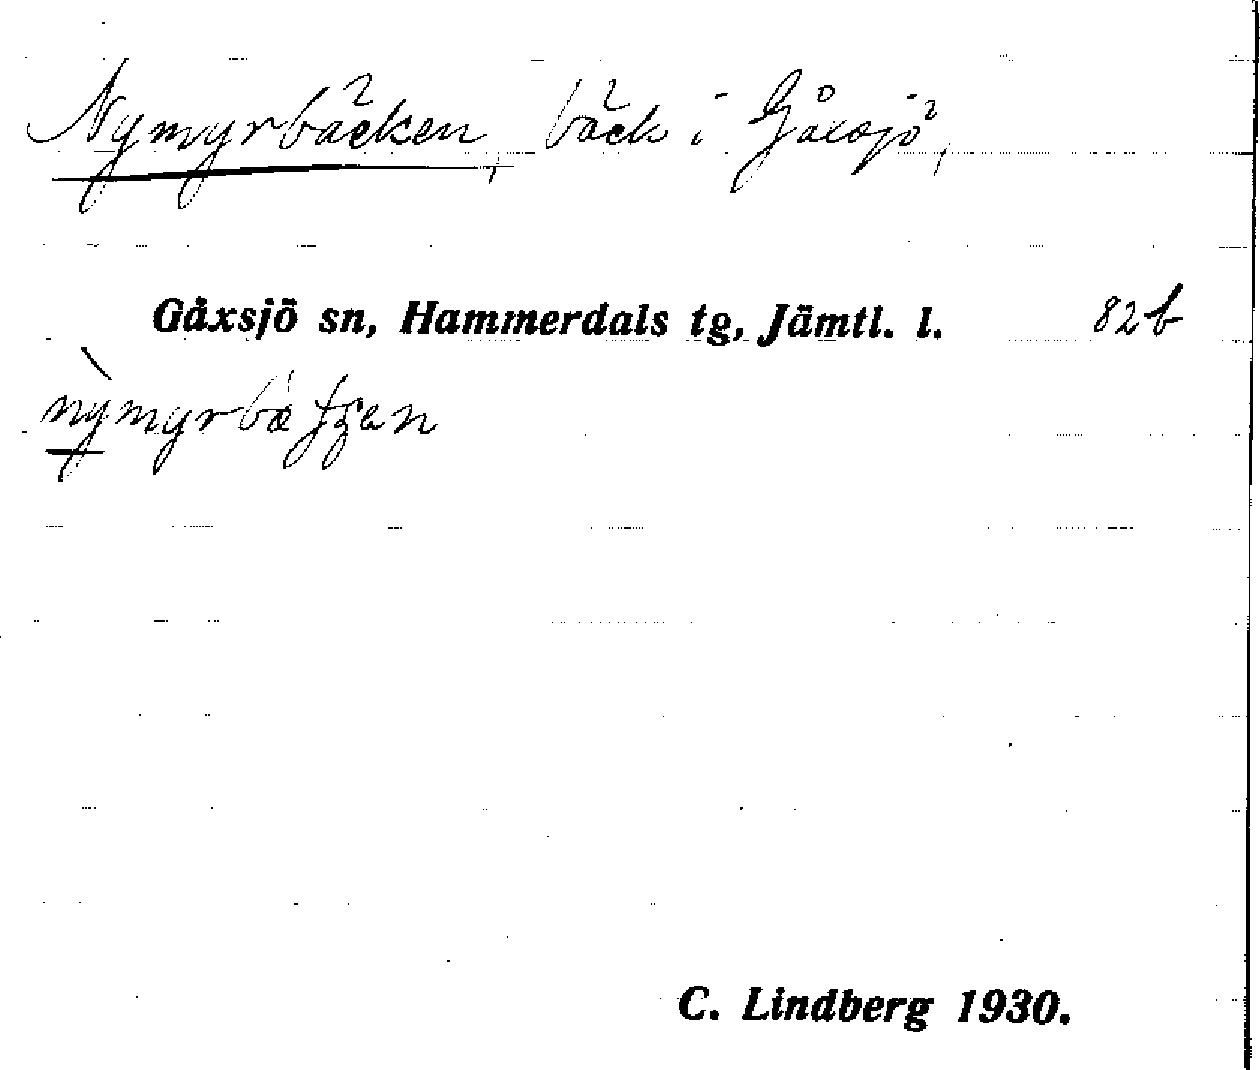 Nymyrbäcken, bäck i Gåxsjö,
Gåxsjö sn, Hammerdals tg, Jämtl. l. 82b
C. Lindberg 1930.